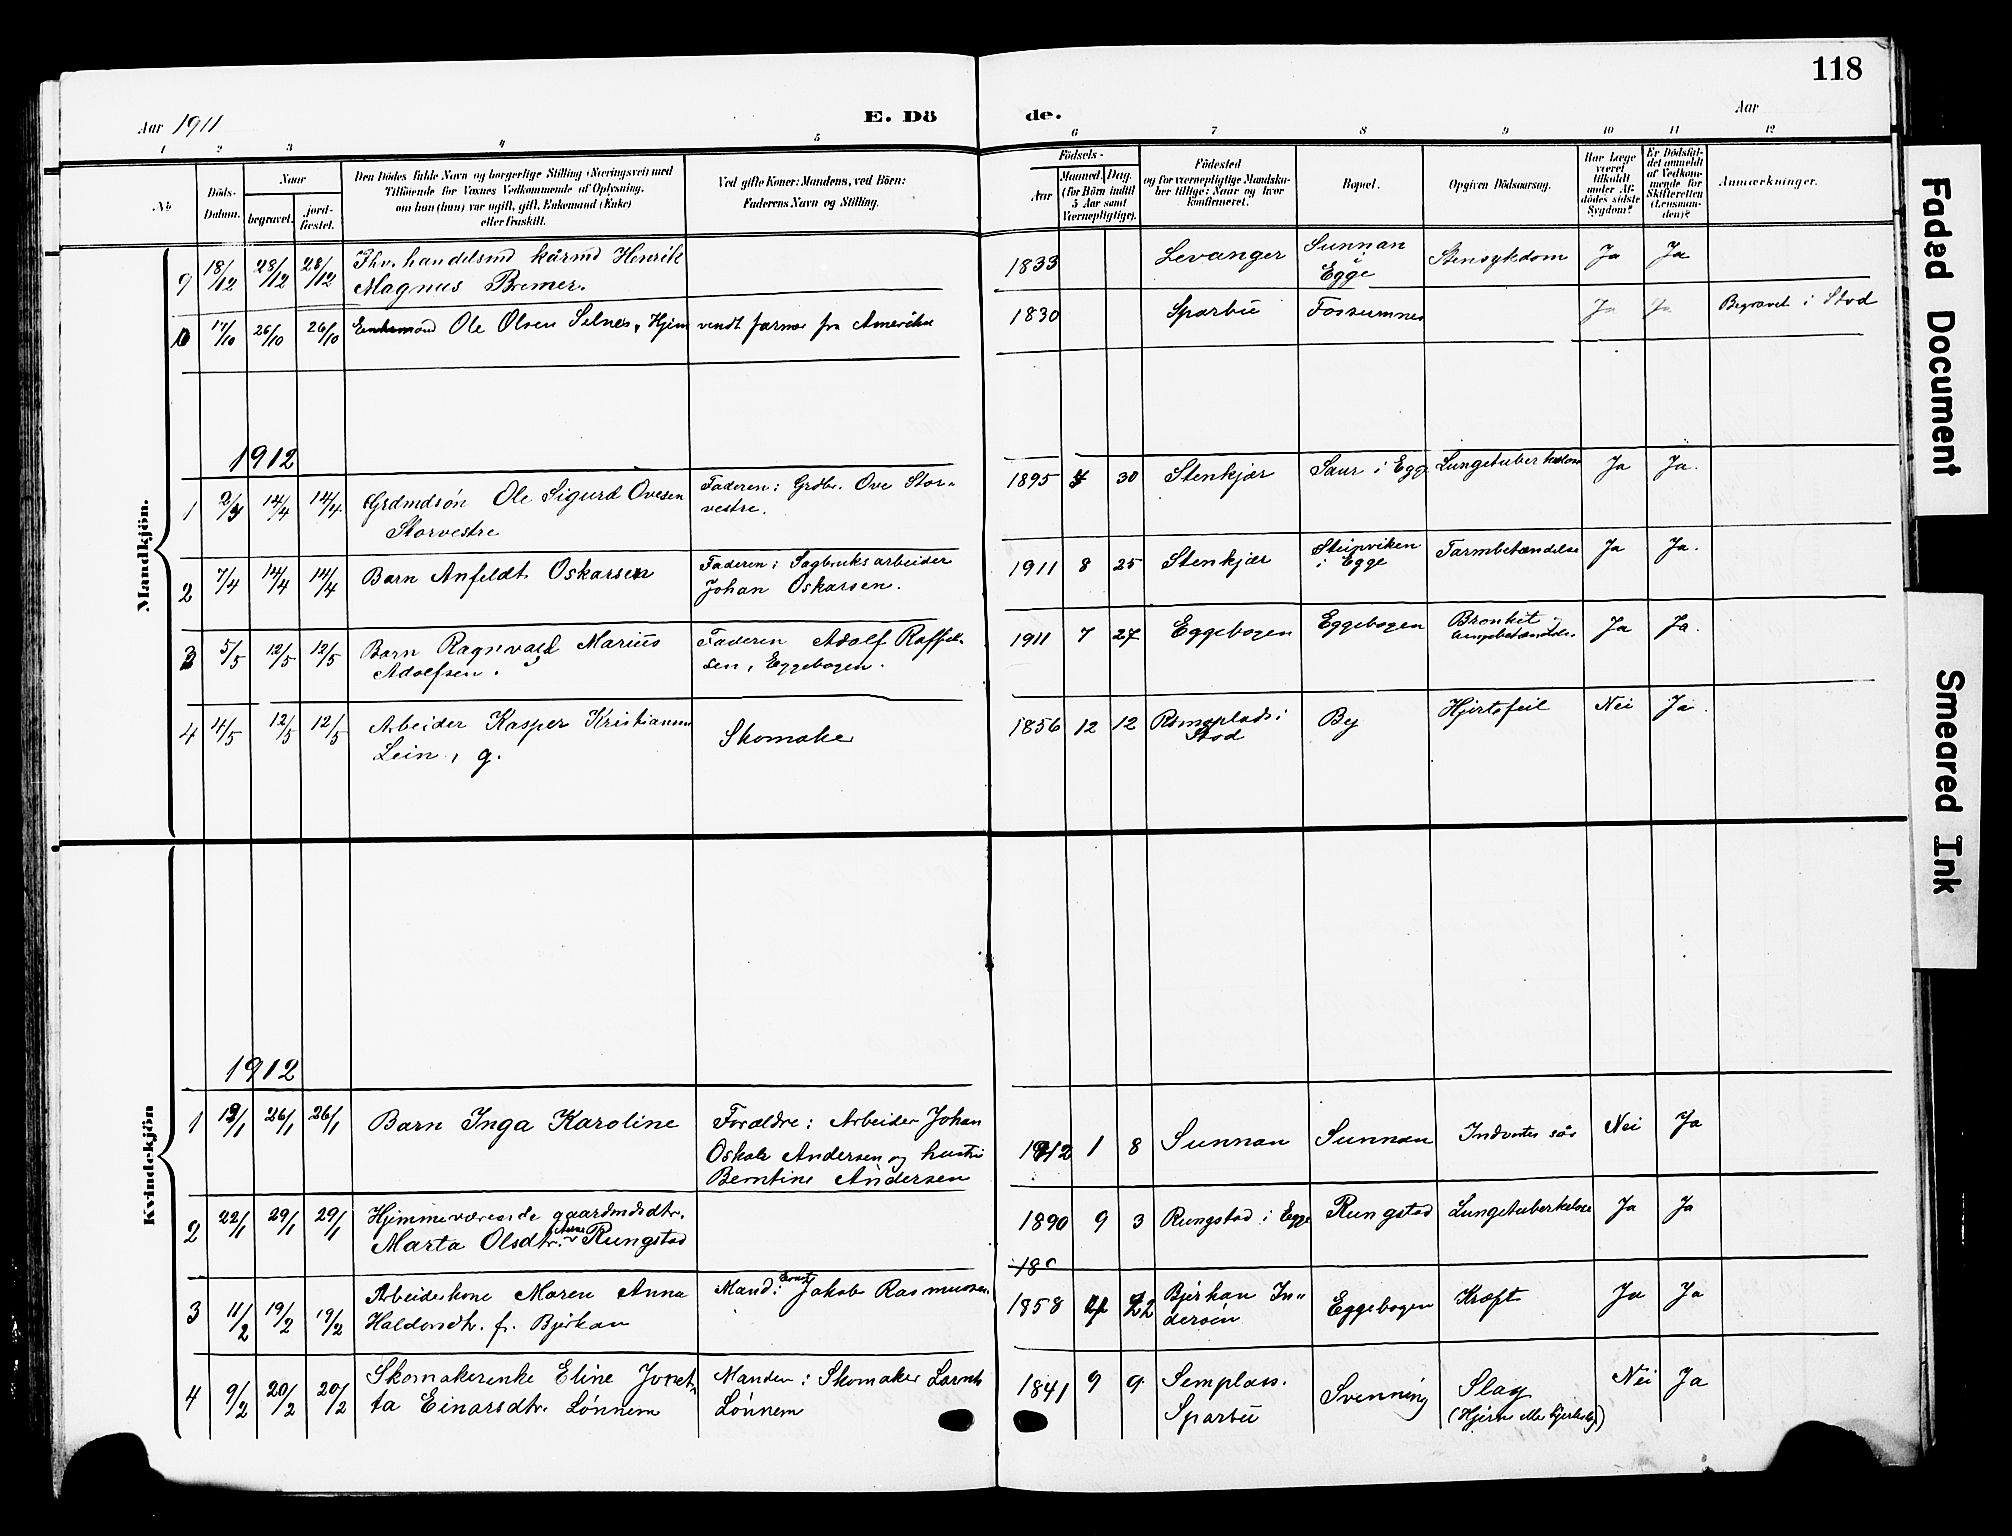 118
Aar 1911
E. Dö
de.
Aar
1 2 3 4 5 6 7 8 9 10 11 12
No
Döds-
Datum.
Naar
begravet.
jord-
fæstet.
Den Dödes fulde Navn og borgerlige Stilling (Næringsvei) med
Tilföiende for Voxnes Vedkommende af Oplysning,
om han (hun) var ugift, gift, Enkemand (Enke)
eller fraskilt.
Ved gifte Koner: Mandens, ved Börn:
Faderens Navn og Stilling.
Födsels-
Aar
Maaned. Dag.
(for Börn indtil
5 Aar samt
Værnepligtige).
Födested
og for værnepligtige Mandska-
ber tillige: Naar og hvor
konfirmeret.
Bopæl.
Opgiven Dödsaarsag.
Har Læge
været
tilkaldt
under Af-
dödes sidste
Sygdom?
Er Dödsfal-
det anmeldt
af Vedkom-
mende for
Skifteretten
(Lensman-
den)?
Anmærkninger.
Mandkjön.
9 18/12 28/12 28/12 Fhv. handelsmd kårmd Henrik
Magnus Bremer.
1833 Levanger Sunnan
i
Egge Stensykdom Ja Ja
10 17/10 26/10 26/10 Enkemand Ole Olsen Selnes, Hjem vendt farmer fra Amerika 1830 Sparbu Fossumnes Ja Ja Begravet i Stod
1912
1 2/4 14/4 14/4 Grdmdsøn Ole Sigurd Ovesen
Storvestre
Faderen: Grdbr. Ove Stor-
vestre.
1895 4 30 Stenkjær Saur i Egge Lungetuberkulose Ja Ja.
2 7/4 14/4 14/4 Barn Anfeldt Oskarsen
Faderen: Sagbruksarbeider
Johan Oskarsen.
1911 8 25 Stenkjær Steinviken
i Egge Tarmbetændelse Ja Ja.
3 5/5 12/5 12/5 Barn Ragnvald Marius
Adolfsen.
Faderen Adolf Raffel-
sen, Eggebogen.
1911 7 27 Eggebogen Eggebogen Bronkit
Lungebetændelse Ja Ja.
4 4/5 12/5 12/5 Arbeider Kasper Kristiansen
Lein, g.
Skomaker
1856 12 12 Stod By Hjertefeil Nei Ja.
Kvindekjön
1912
1 12/1 26/1 26/1 Barn Inga Karoline
Forældre: Arbeider Johan
Oskar Andersen og hustru
Berntine Andersen
1912 1 8 Sunnan Sunnan Indvortes sår Nei Ja
2 22/1 29/1 29/1 Hjemmeværende gaardmdsdtr.
Marta Olsdtr. Rungstad
1890 9 3 Rungstad i Egge Rungstad Lungetuberkulose Ja Ja
18
3 11/2 19/2 19/2 Arbeiderkone Maren Anna
Haldorsdtr. f. Bjerkan
Mand: Ernst Jakob Rasmussen
1858 4 22 Bjerkan In-
derøen Eggebogen Kræft Ja Ja
4 9/2 20/2 20/2 Skomakerenke Eline Jonet-
ta Einarsdtr. Lønnem
Manden: Skomaker Lornts
Lønnem
1841 9 9 Semplass.
Sparbu Svenning Slag
(Hjerne eller hjerteslag) Nei Ja
Faded Document
Smeared Ink